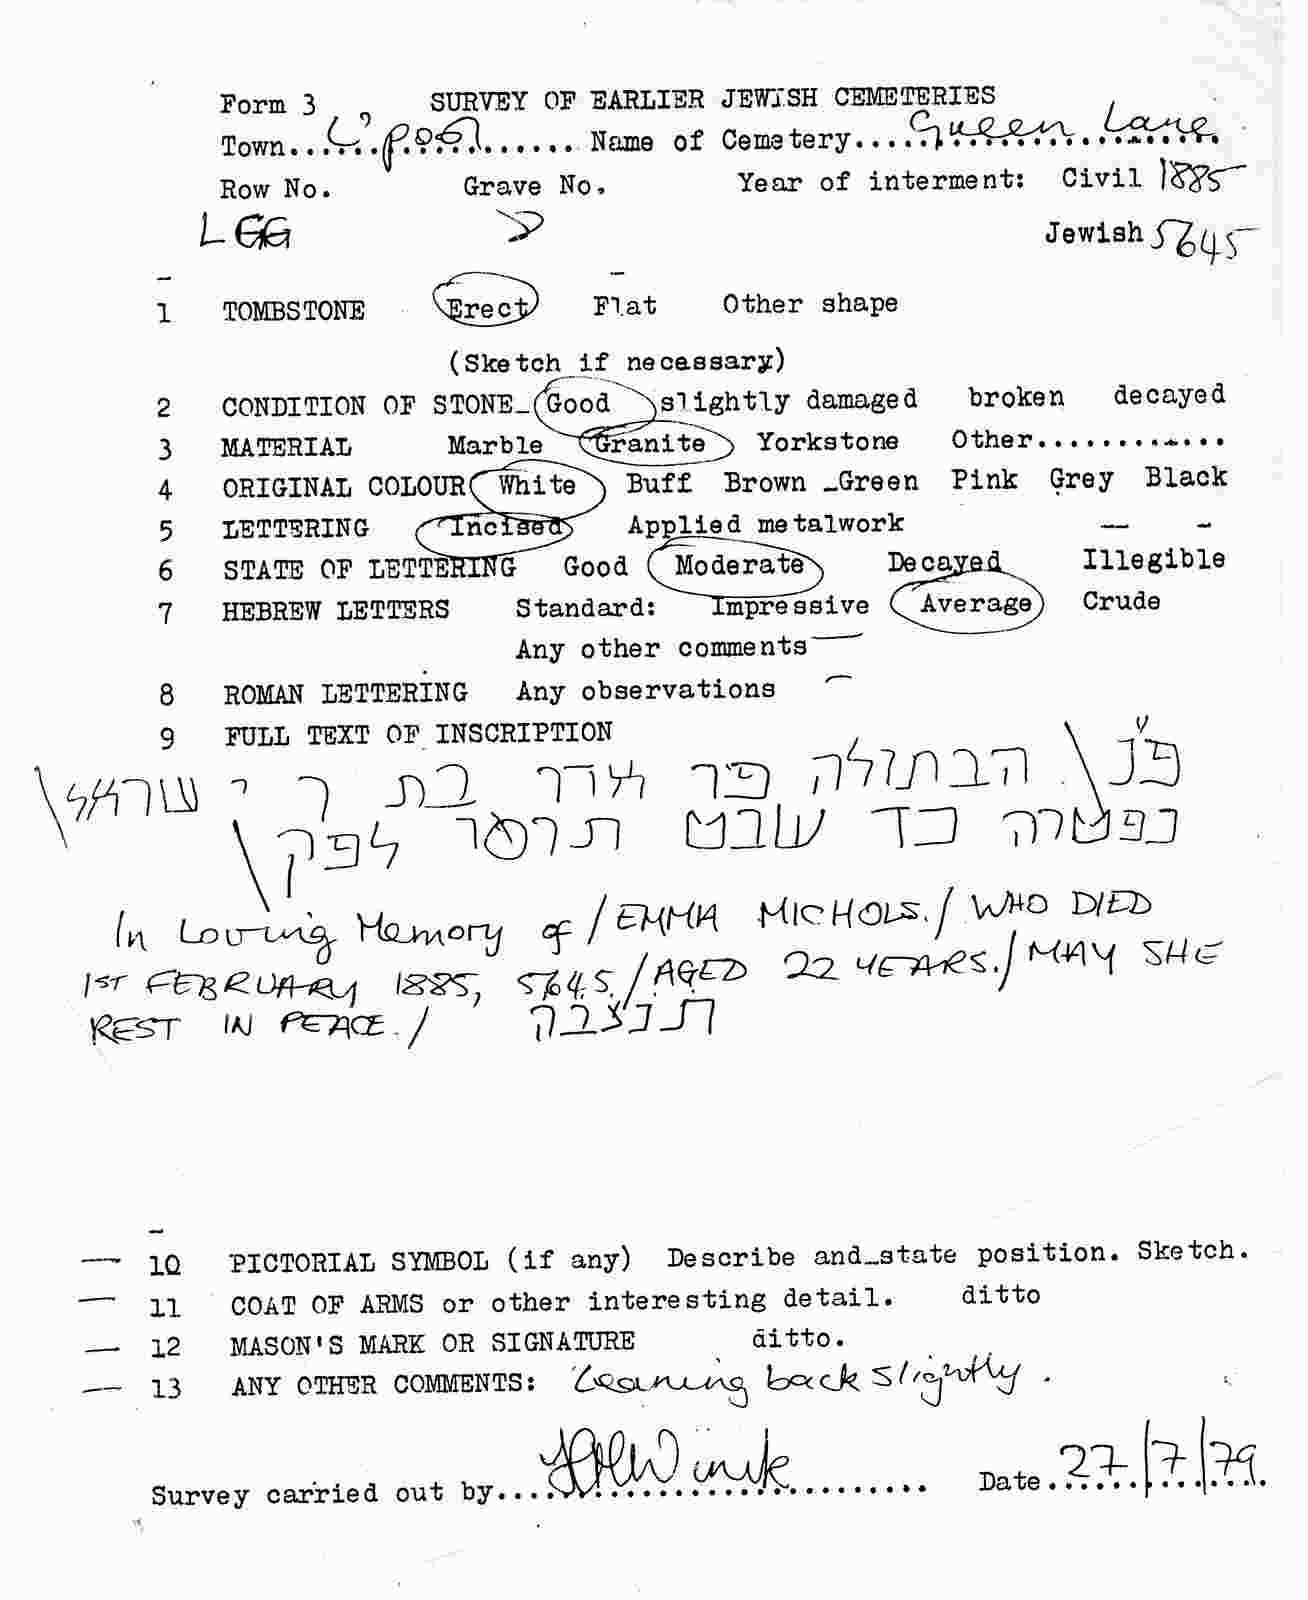 Form 3 SURVEY OF EARLIER JEWISH CEMETERIES
Town......L'pool...... Name of Cemetery....Green Lane
Row No. Grave No. Year of interment: Civil 1885
L GG Jewish 5645
1 TOMBSTONE Erect Flat Other shape
(Sketch if necessary)
2 CONDITION OF STONE Good slightly damaged broken decayed
3 MATERIAL Marble Granite Yorkstone Other............
4 ORIGINAL COLOUR White Buff Brown Green Pink Grey Black
5 LETTERING Incised Applied metalwork
6 STATE OF LETTERING Good Moderate Decayed Illegible
7 HEBREW LETTERS Standard: Impressive Average Crude
Any other comments —
8 ROMAN LETTERING Any observations —
9 FULL TEXT OF INSCRIPTION
פ"נ \ הבתולה פר אדר בת ר י שראל \
נפטרה כד שבט תרמר לפק \
In Loving Memory of / EMMA MICHOLS. / WHO DIED
1ST FEBRUARY 1885, 5645. / AGED 22 YEARS. / MAY SHE
REST IN PEACE. / תנצבה
— 10 PICTORIAL SYMBOL (if any) Describe and state position. Sketch.
— 11 COAT OF ARMS or other interesting detail. ditto
— 12 MASON'S MARK OR SIGNATURE ditto.
— 13 ANY OTHER COMMENTS: Leaning back slightly.
Survey carried out by.....Winik..... Date 27/7/79